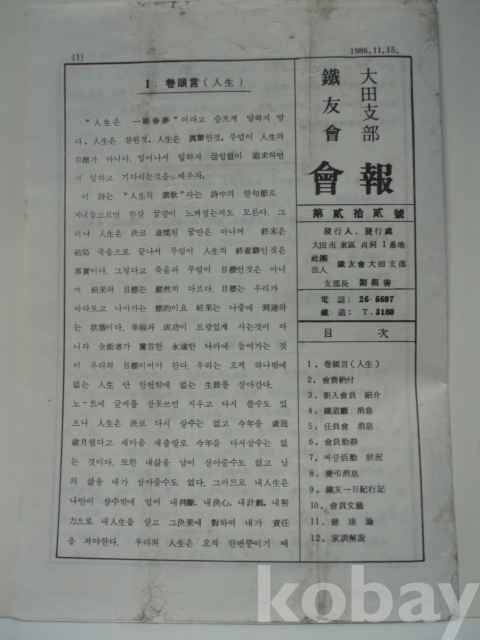 (1)
1986.11.15.
1. 卷頭言(人生)
"人生은 一場春夢"이라고 슬프게 말하지 말
라. 人生은 참된것. 人生은 眞摯한것. 우덤이 人生의
目標가 아니다. 일어나서 일하자 끊임없이 追求하면
서 일하고 기다리는것을 배우자.
이 詩는 "人生의 讚歌"라는 詩中의 한句節로
지내놓고보면 한갖 꿈같이 느껴질는지도 모른다. 그
러나 人生은 決코 虛慌된 꿈만은 아니며 終末은
結局 죽음으로 끝나서 무덤이 人生의 終着驛인것은
事實이다. 그렇다고 죽음과 무덤이 目標인것은 아니
며 結果와 目標는 嚴然히 다르다. 目標는 우리가
바라보고 나아가는 標的이요 結果는 나중에 到達하
는 狀態이다. 幸福과 成功이 보람있게 사는것이 아
니라 全能者가 豫言한 永遠한 나라에 들어가는 것
이 우리의 目標이어야 한다. 우리는 오직 하나밖에
없는 人生 단 한번밖에 없는 生涯를 살아간다.
노-트에 글씨를 잘못쓰면 지우고 다시 쓸수도 있
으나 人生은 決코 다시 살수는 없고 今年을 虛送
歲月했다고 새마음 새출발로 今年을 다시살수는 없
는 것이다. 또한 내삶을 남이 살아줄수도 없고 남
의 삶을 내가 살아줄수도 없다. 그러므로 내人生은
나만이 살수밖에 없어 내判斷, 내決心, 내計劃, 내努
力으로 내人生을 살고 그決果에 對하여 내가 責任
을 져야한다. 우리의 人生은 오직 한번뿐이기 때
大田支部
鐵友會
會報
第貳拾貳號
發行人, 發行處
大田市 東區 貞洞 1番地
社團法人 鐵友會大田支部
支部長 劉 善
電話: 26-6697
鐵道: T.3180
目 次
1, 卷頭言(人生)
2, 會費納付
3, 新入會員 紹介
4, 鐵道廳 消息
5, 任員會 消息
6, 會員動靜
7, 써클活動 狀況
8, 慶弔消息
9, 鐵友一日紀行記
10, 會員文藝
11, 健康論
12, 家訓解說
kobay